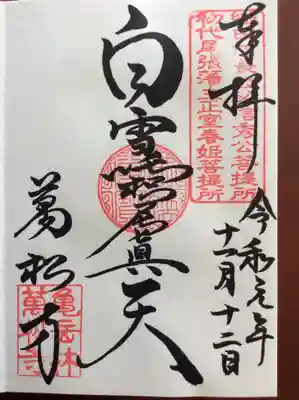 奉拝
信秀公菩提所
初代尾張藩主正室春姫菩提所
令和元年
十二月十二日
白雪吒枳尼眞天
萬松寺
龜岳林
萬松寺